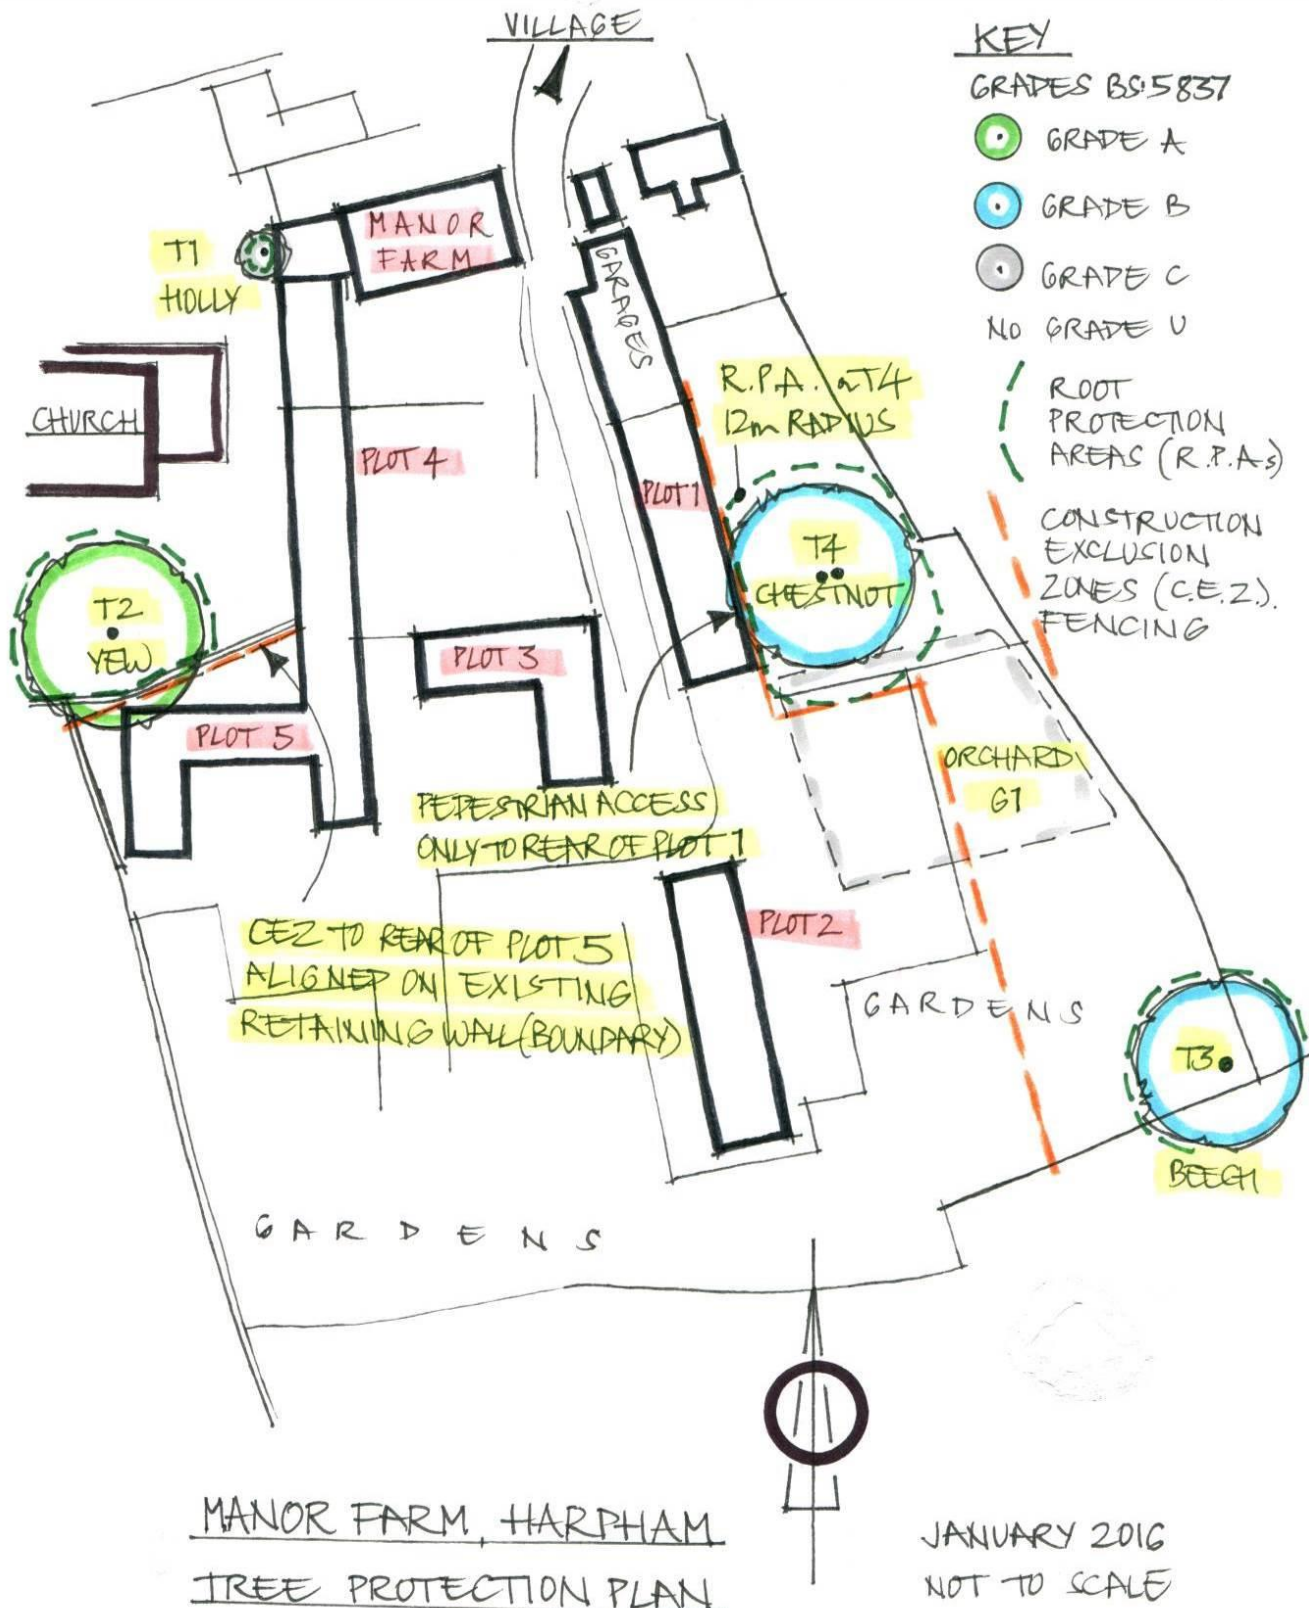 VILLAGE
KEY
GRADES BS:5837
GRADE A
GRADE B
GRADE C
NO GRADE U
ROOT
PROTECTION
AREAS (R.P.A.s)
CONSTRUCTION
EXCLUSION
ZONES (C.E.Z.).
FENCING
MANOR
FARM
T1
HOLLY
GARAGES
CHURCH
R.P.A. on T4
12m RADIUS
PLOT 4
PLOT 1
T4
CHESTNUT
T2
YEW
PLOT 3
PLOT 5
ORCHARD
G1
PEDESTRIAN ACCESS
ONLY TO REAR OF PLOT 1
PLOT 2
CEZ TO REAR OF PLOT 5
ALIGNED ON EXISTING
RETAINING WALL (BOUNDARY)
GARDENS
T3
BEECH
GARDENS
MANOR FARM, HARPHAM
TREE PROTECTION PLAN
JANUARY 2016
NOT TO SCALE